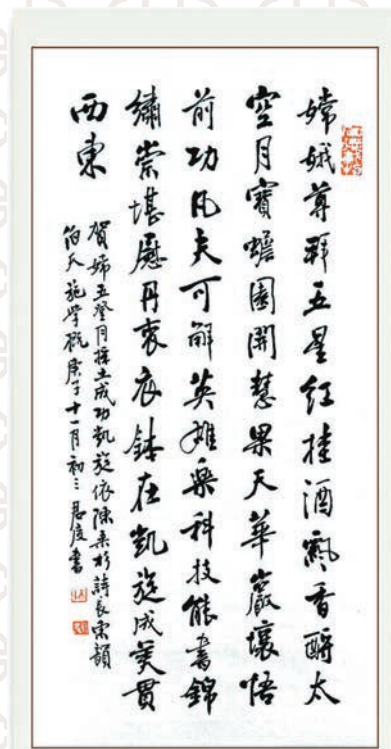 嫦娥尊拜五星红桂酒飄香醉太
空月寶蟾園開慧果天華巖壤悟
前功凡夫可解英雄樂科技能書錦
繡崇堪慰丹衷衣鉢在凱旋成美貫
西東
賀嫦五登月採土成功凱旋依陳詩長韻
施學概庚子十一月初三書